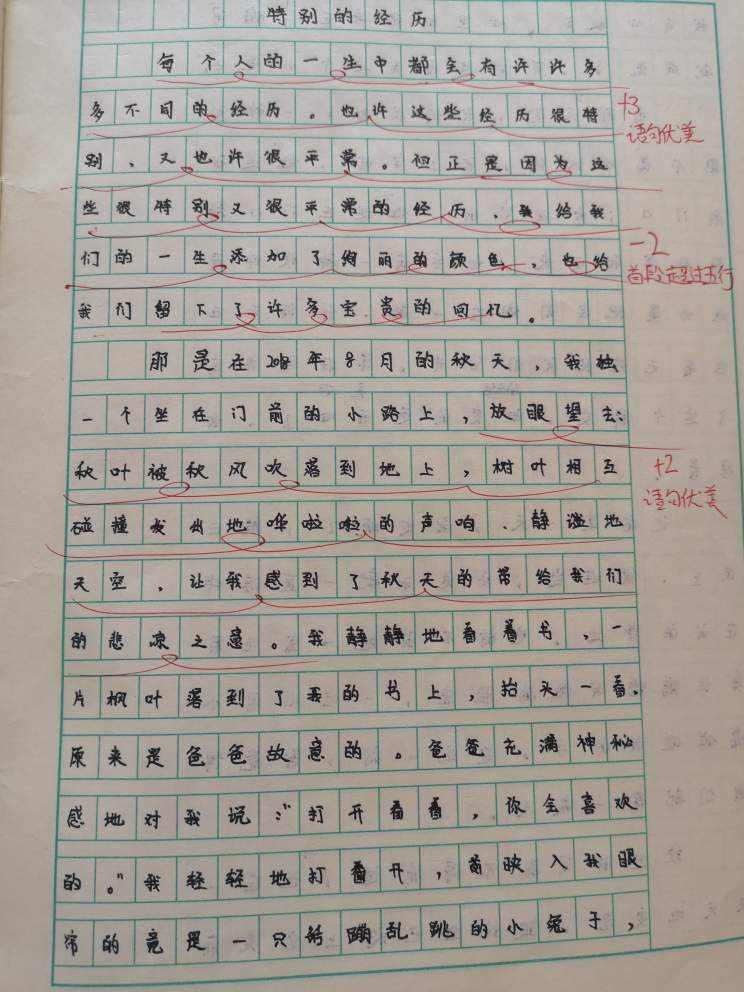 特别的经历
每个人的一生中都会有许许多
多不同的经历。也许这些经历很特
+3
语句优美
别、又也许很平常。但正是因为这
些很特别又很平常的经历，我给我
们的一生添加了绚丽的颜色，也给
-2
首段走超过五行
我们留下了许多宝贵的回忆。
那是在2018年8月的秋天，我独
一个坐在门前的小路上，放眼望去：
秋叶被秋风吹落到地上，树叶相互
+2
语句优美
碰撞发出地"哗啦啦的声响、静谧地
天空，让我感到了秋天的带给我们
的悲凉之意。我静静地看着书，一
片枫叶落到了我的书上，抬头一看，
原来是爸爸故意的。爸爸充满神秘
感地对我说："打开看看，你会喜欢
的。"我轻轻地打看开，首映入我眼
帘的竟是一只活蹦乱跳的小兔子，